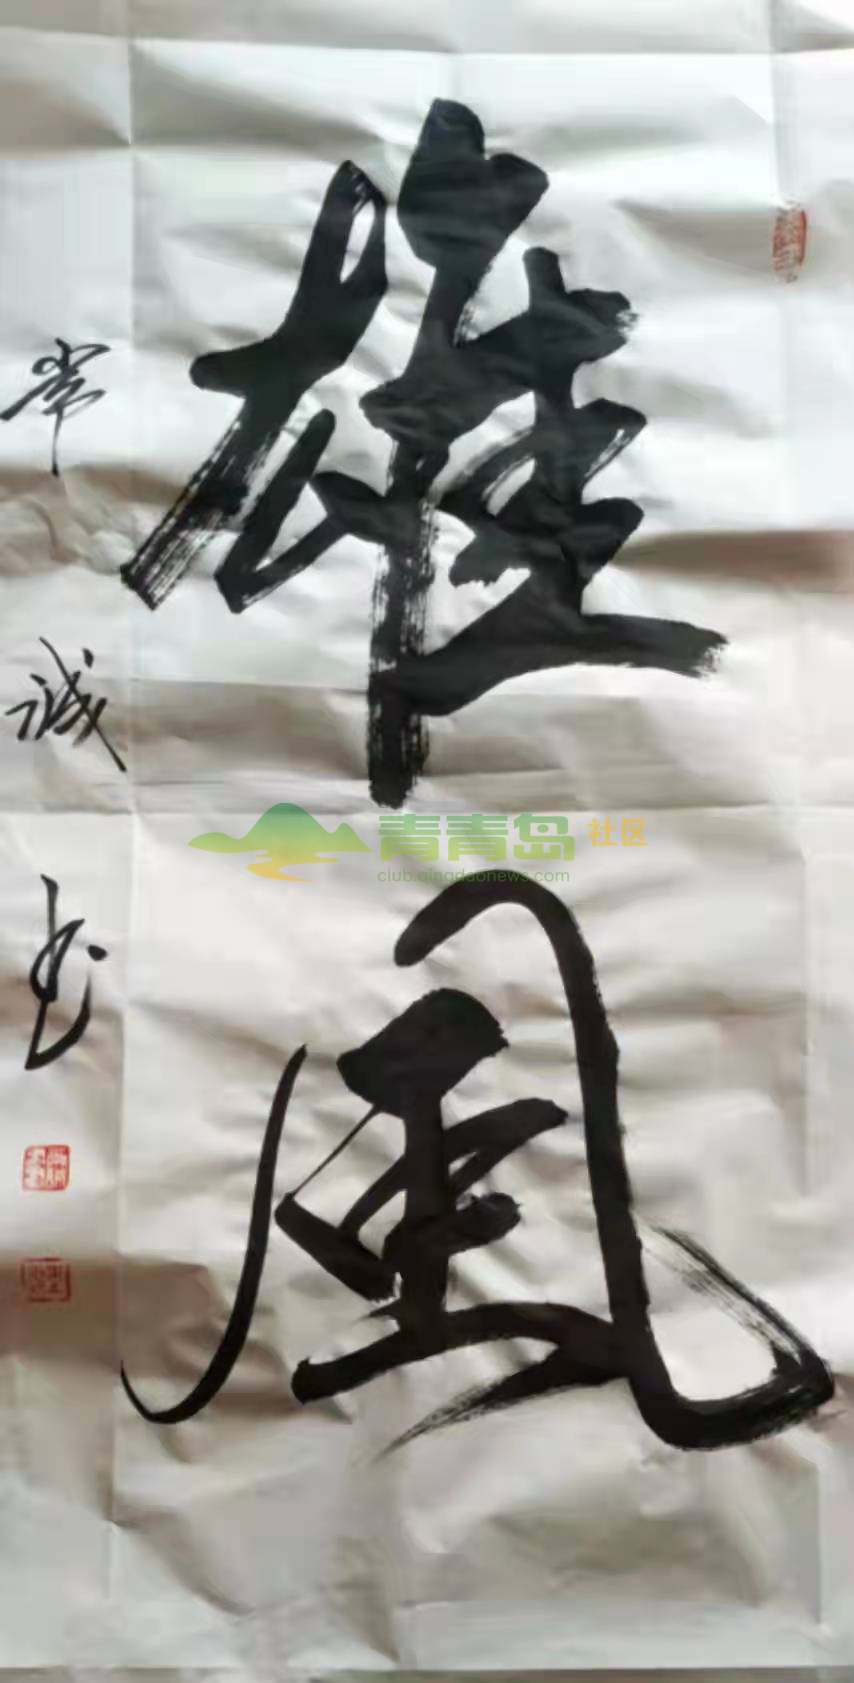 雄风
常诚书
青青岛社区
club.qingdaonews.com